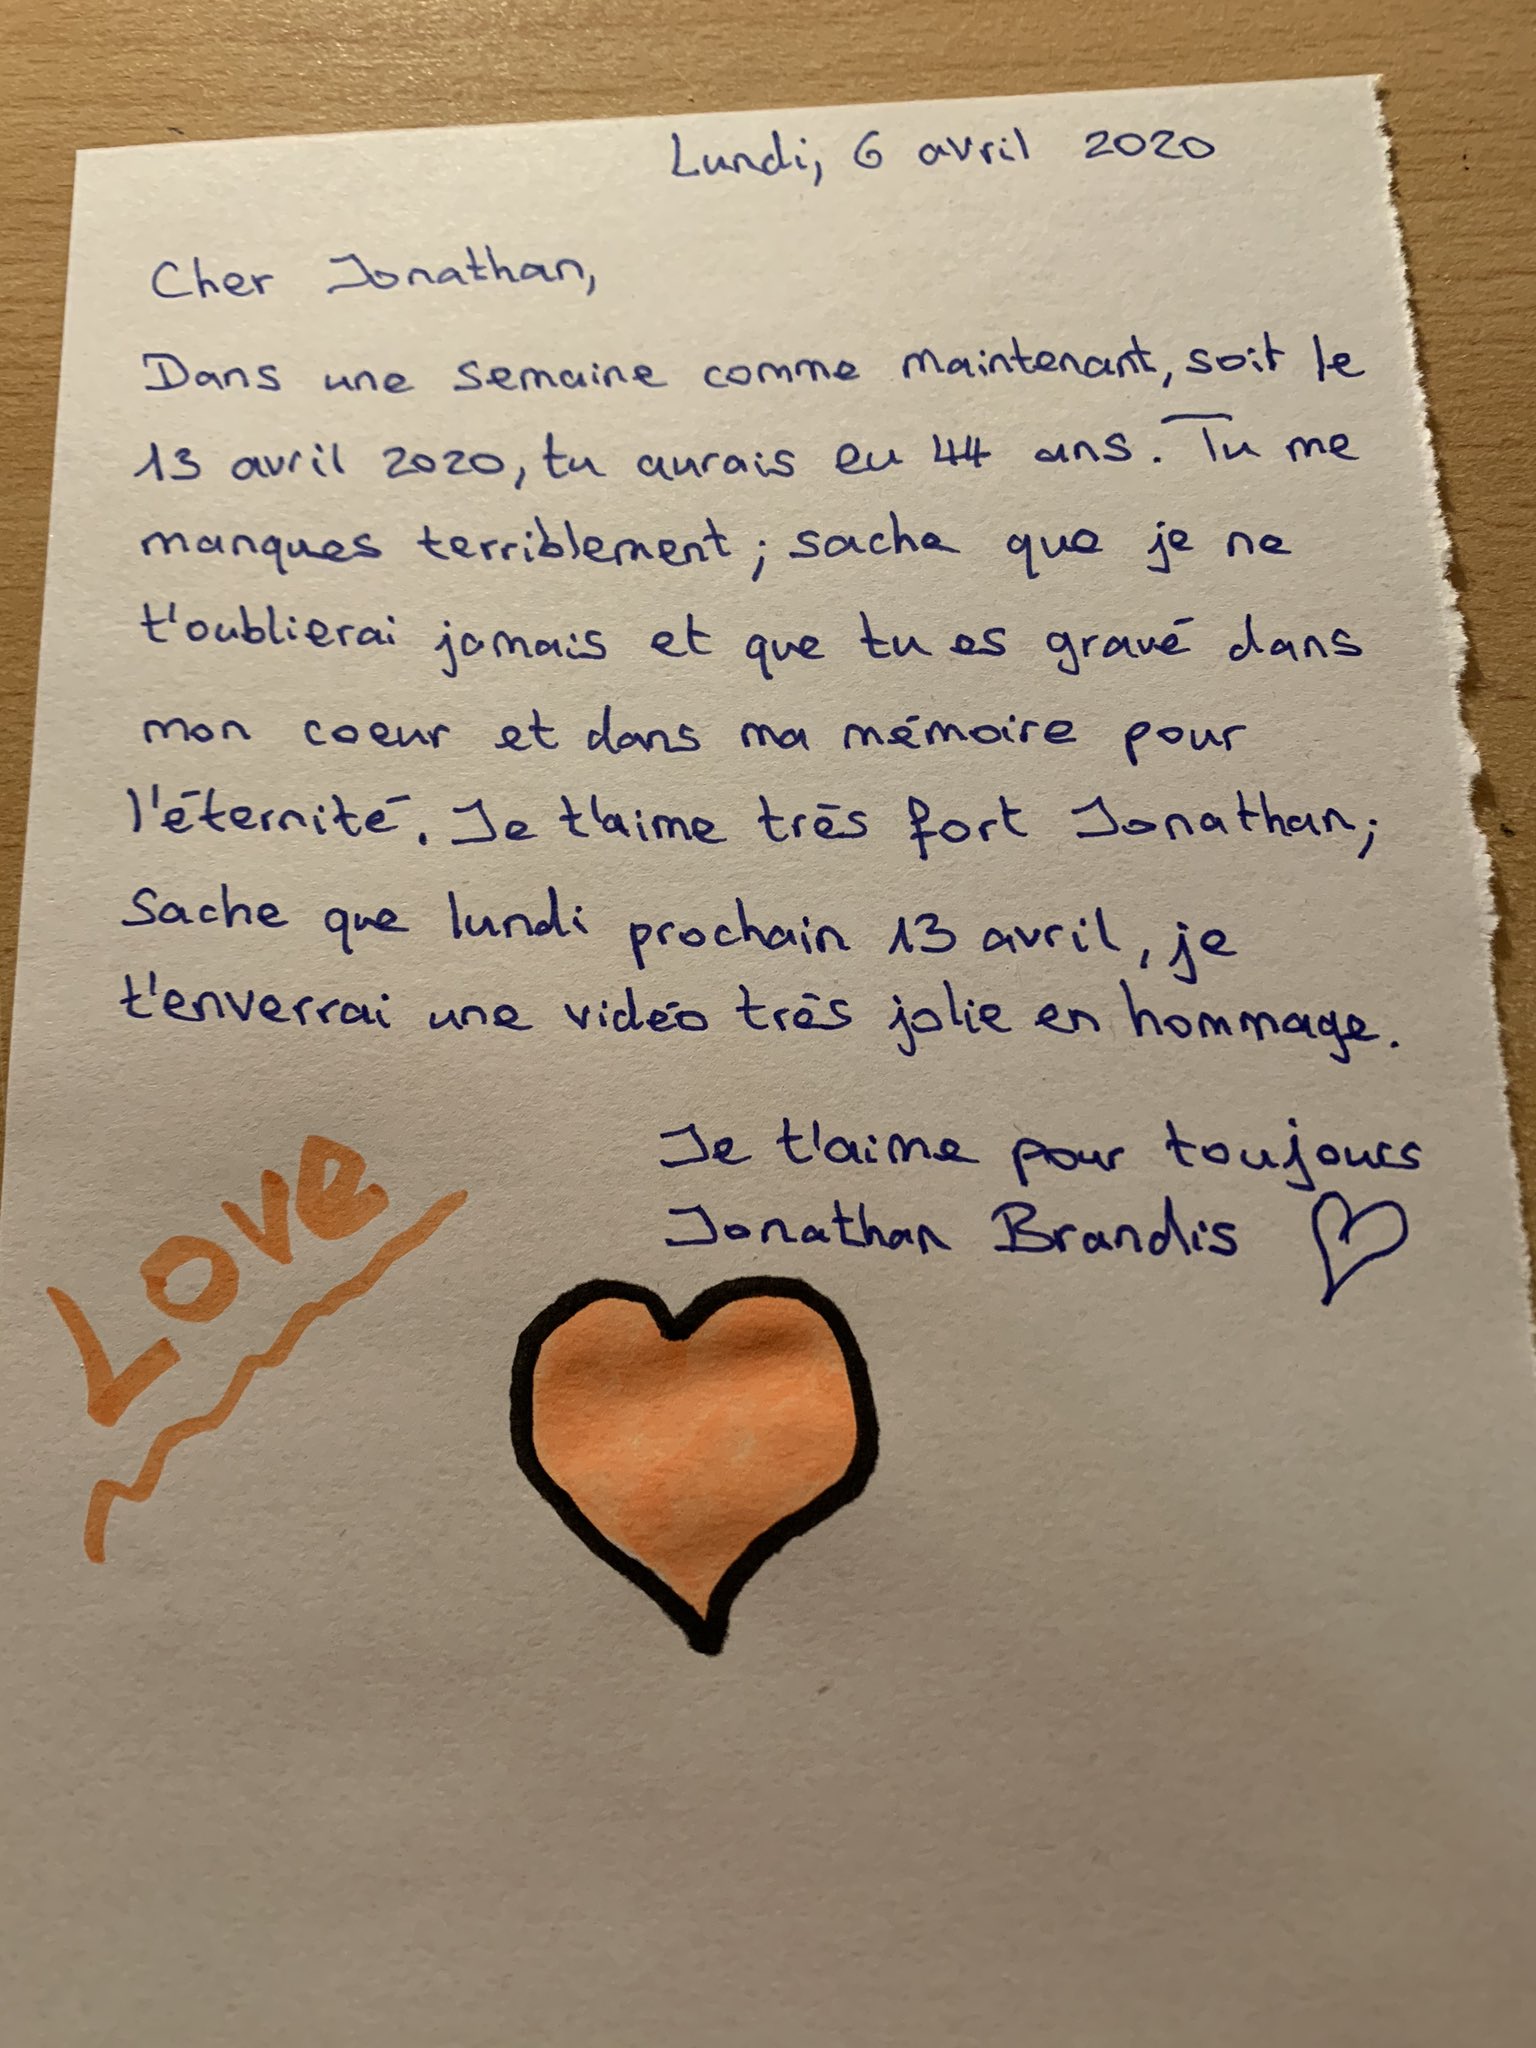 Lundi, 6 avril 2020
Cher Jonathan,
Dans une semaine comme maintenant, soit le
13 avril 2020, tu aurais eu 44 ans. Tu me
manques terriblement; sache que je ne
t'oublierai jamais et que tu es gravé dans
mon coeur et dans ma mémoire pour
l'éternité. Je t'aime très fort Jonathan;
Sache que lundi prochain 13 avril, je
t'enverrai une vidéo très jolie en hommage.
Je t'aime pour toujours
Jonathan Brandis
Love